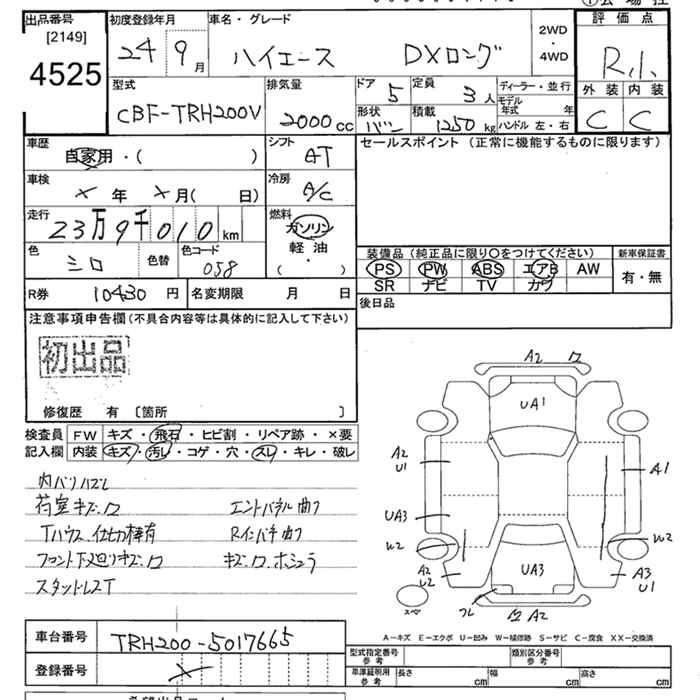 出品番号 [2149] 4525
初度登録年月 24 9月
車名・グレード ハイエース DXロング
2WD・4WD
評価点 R.1.
外装 C 内装 C
型式 CBF-TRH200V
排気量 2000cc
ドア 5 定員 3人
形状 バン 積載 1250kg
ディーラー・並行
モデル年式 年
ハンドル 左・右
車歴 自家用・( )
シフト AT
セールスポイント (正常に機能するものに限ります)
車検 × 年 × 月( 日)
冷房 A/C
走行 23万9千010km
燃料 ガソリン 軽油 ( ・ )
色 シロ 色替 色コード 058
装備品 (純正品に限り○をつけてください) 新車保証書
PS PW ABS エアB AW 有・無
SR ナビ TV カワ
R券 10430円 名変期限 月 日
後日品
注意事項申告欄 (不具合内容等は具体的に記入して下さい)
初出品
修復歴 有 〔箇所 〕
検査員記入欄
FW キズ・飛石・ヒビ割・リペア跡・×要
内装 キズ・汚レ・コゲ・穴・スレ・キレ・破レ
内バリハズレ
荷室キズ.ワ エンドパネル曲フ
Tハウス.仕切棒有 Rインパネ曲フ
フロント下廻りキズ.ワ
スタッドレスT
A2 ワ
UA1
A2 U1
A1
UA3
W2 W2
A2 W2
UA3
A3 U1
A2
スペ
A-キズ E-エクボ U-凹み W-補修跡 S-サビ C-腐食 XX-交換済
車台番号 TRH200-5017665
登録番号 ×
型式指定番号 参考 類別区分番号 参考
車庫証明用 参考 長さ cm 幅 cm 高さ cm